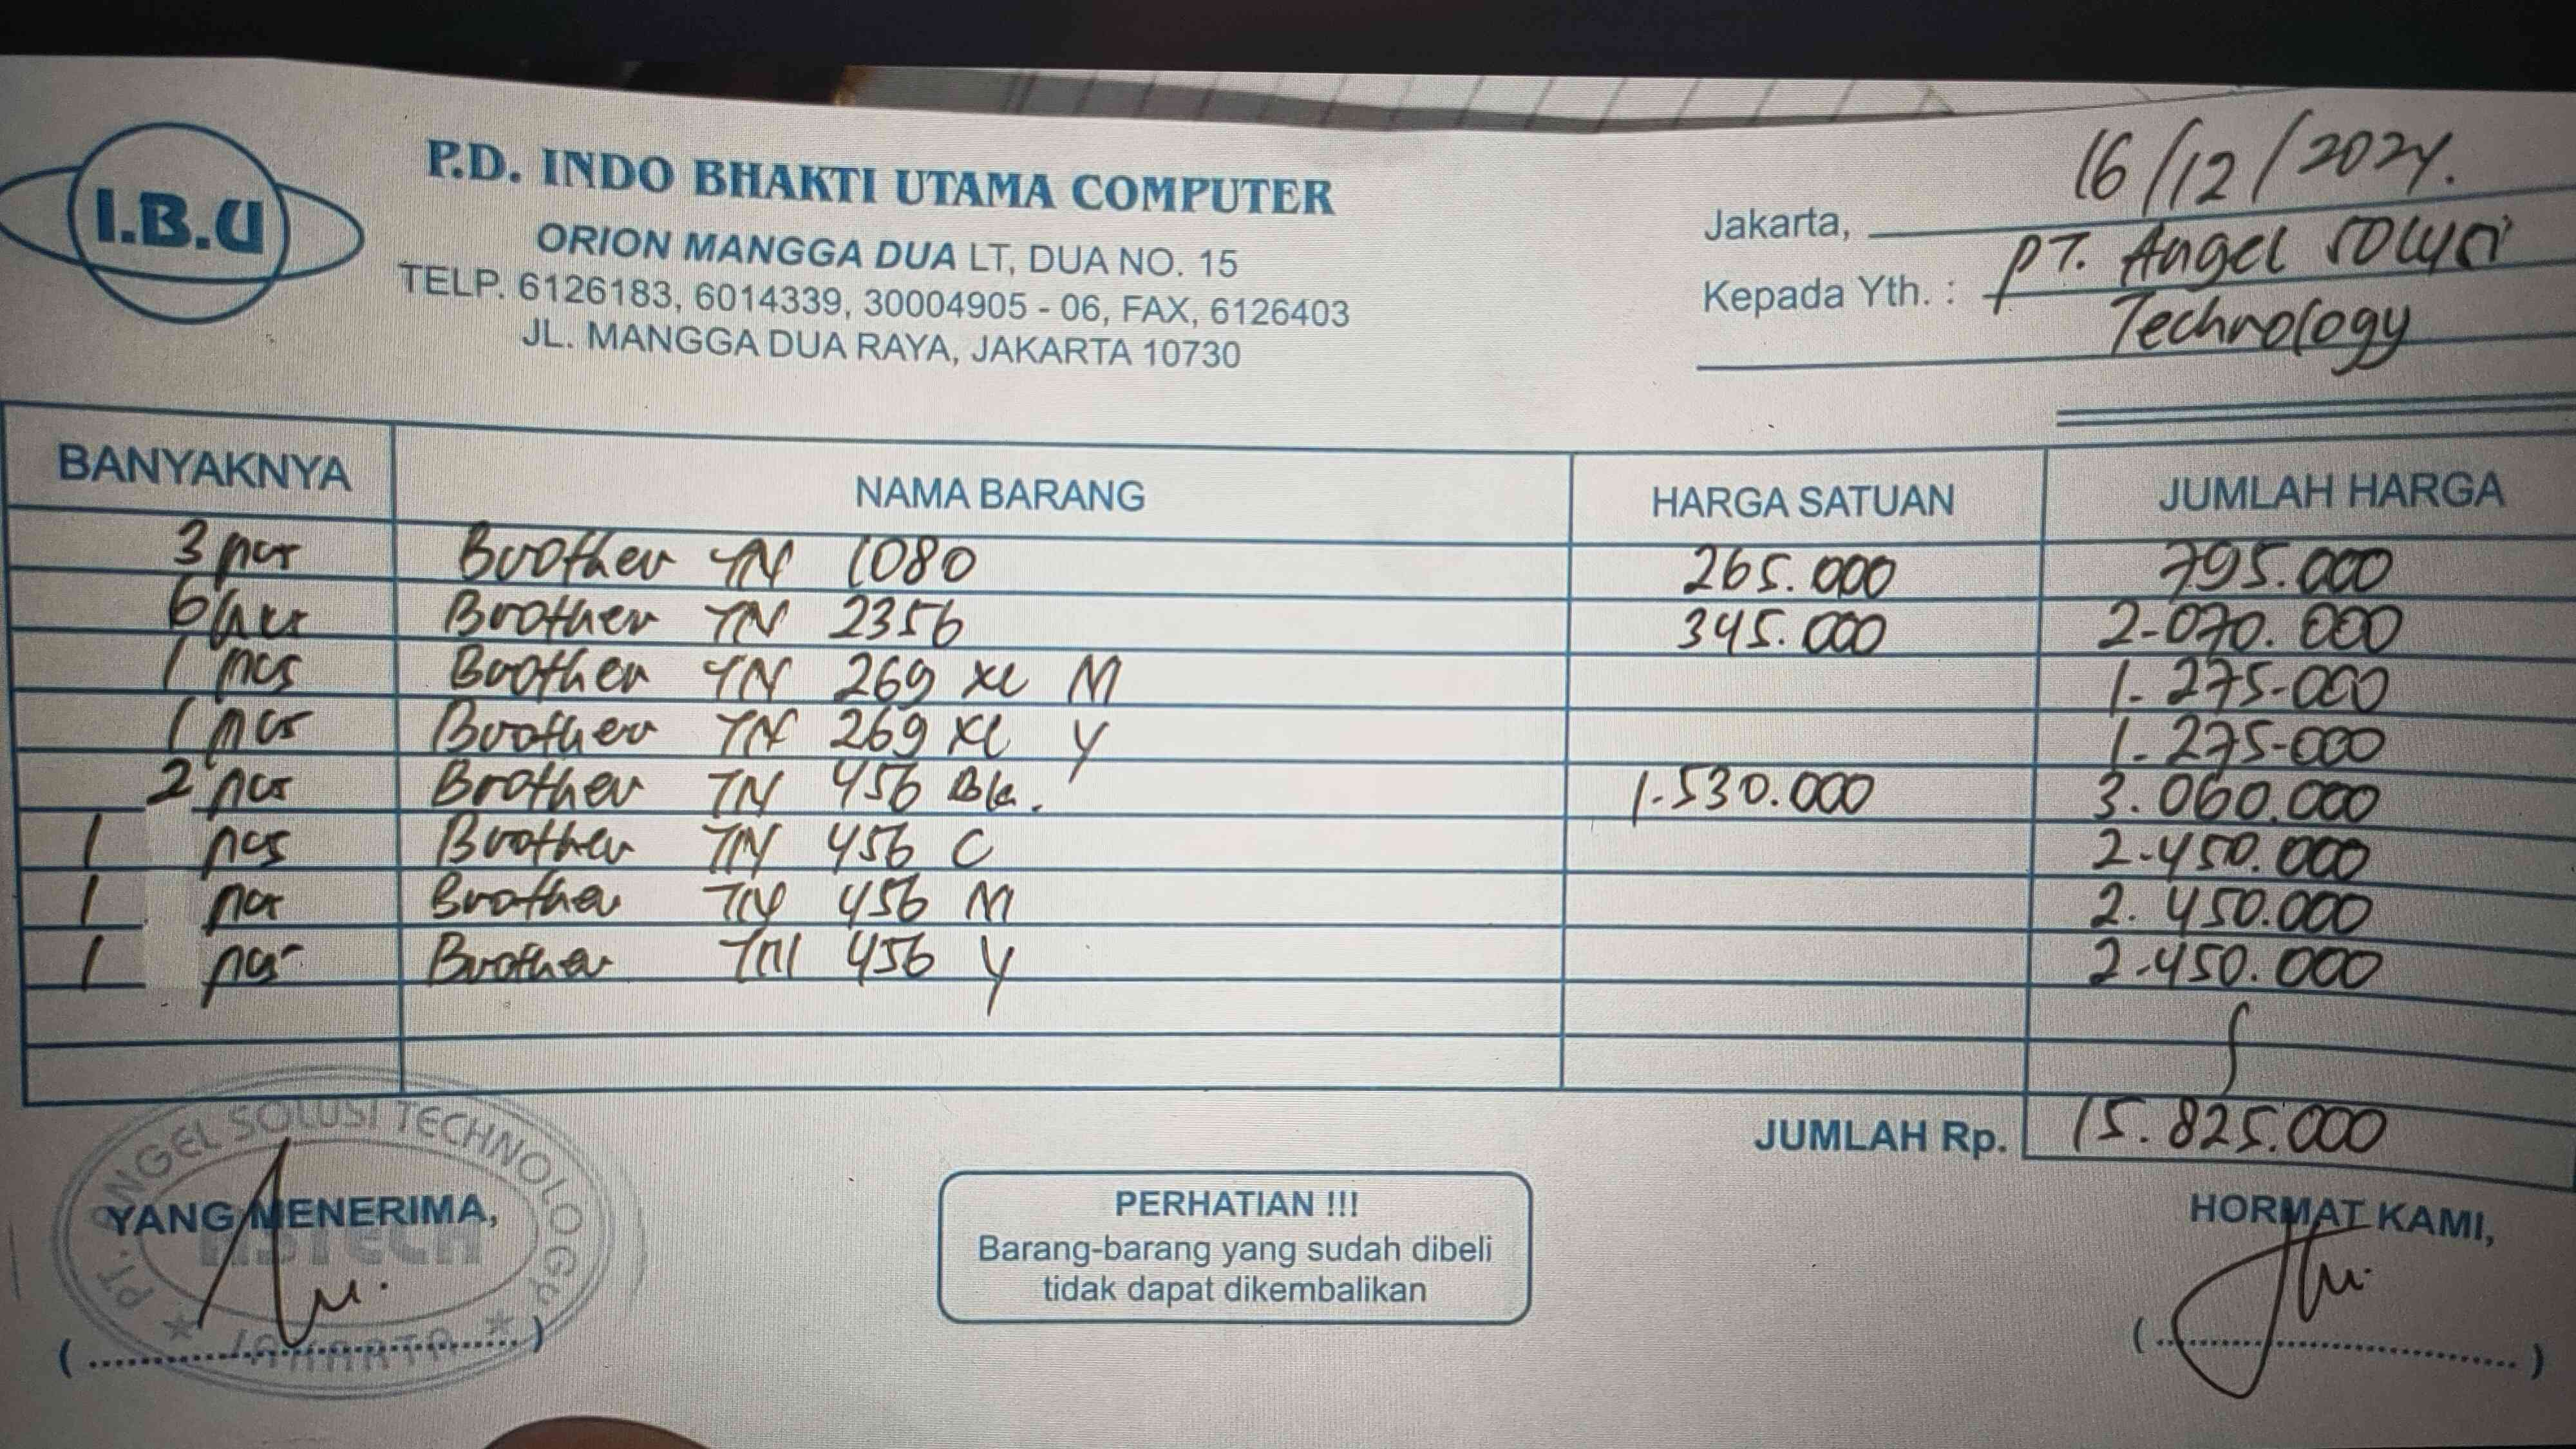 I.B.U
P.D. INDO BHAKTI UTAMA COMPUTER
ORION MANGGA DUA LT, DUA NO. 15
TELP. 6126183, 6014339, 30004905 - 06, FAX, 6126403
JL. MANGGA DUA RAYA, JAKARTA 10730
Jakarta, 16/12/2024.
Kepada Yth. : PT. Angel Solusi
Technology
BANYAKNYA NAMA BARANG HARGA SATUAN JUMLAH HARGA
3 pcs Brother TN 1080 265.000 795.000
6 pcs Brother TN 2356 345.000 2.070.000
1 pcs Brother TN 269 XL M 1.275.000
1 pcs Brother TN 269 XL Y 1.275.000
2 pcs Brother TN 456 Bk. 1.530.000 3.060.000
1 pcs Brother TN 456 C 2.450.000
1 pcs Brother TN 456 M 2.450.000
1 pcs Brother TN 456 Y 2.450.000
JUMLAH Rp. 15.825.000
YANG MENERIMA,
PT. ANGEL SOLUSI TECHNOLOGY
ASTECH
JAKARTA
PERHATIAN !!!
Barang-barang yang sudah dibeli
tidak dapat dikembalikan
HORMAT KAMI,